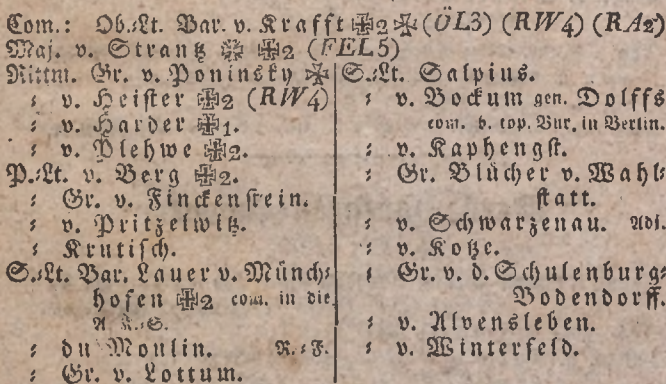 Com.: Ob.-Lt. Bar. v. Krafft ✠2 ✠ (ÖL3) (RW4) (RA2)
Maj. v. Strantz ✠ ✠2 (FEL5)
Rittm. Gr. v. Poninsky ✠
: v. Heister ✠2 (RW4)
: v. Harder ✠1.
: v. Plehwe ✠2.
P.-Lt. v. Berg ✠2.
: Gr. v. Finckenstein.
: v. Pritzelwitz.
: Krutisch.
S.-Lt. Bar. Lauer v. Münch-
hofen ✠2 com. in die
A. K.-S.
: du Moulin. R.-F.
: Gr. v. Lottum.
S.-Lt. Salpius.
: v. Bockum gen. Dolffs
com. b. top. Bur. in Berlin.
: v. Kaphengst.
: Gr. Blücher v. Wahl-
statt.
: v. Schwarzenau. Adj.
: v. Kotze.
: Gr. v. d. Schulenburg-
Bodendorff.
: v. Alvensleben.
: v. Winterfeld.